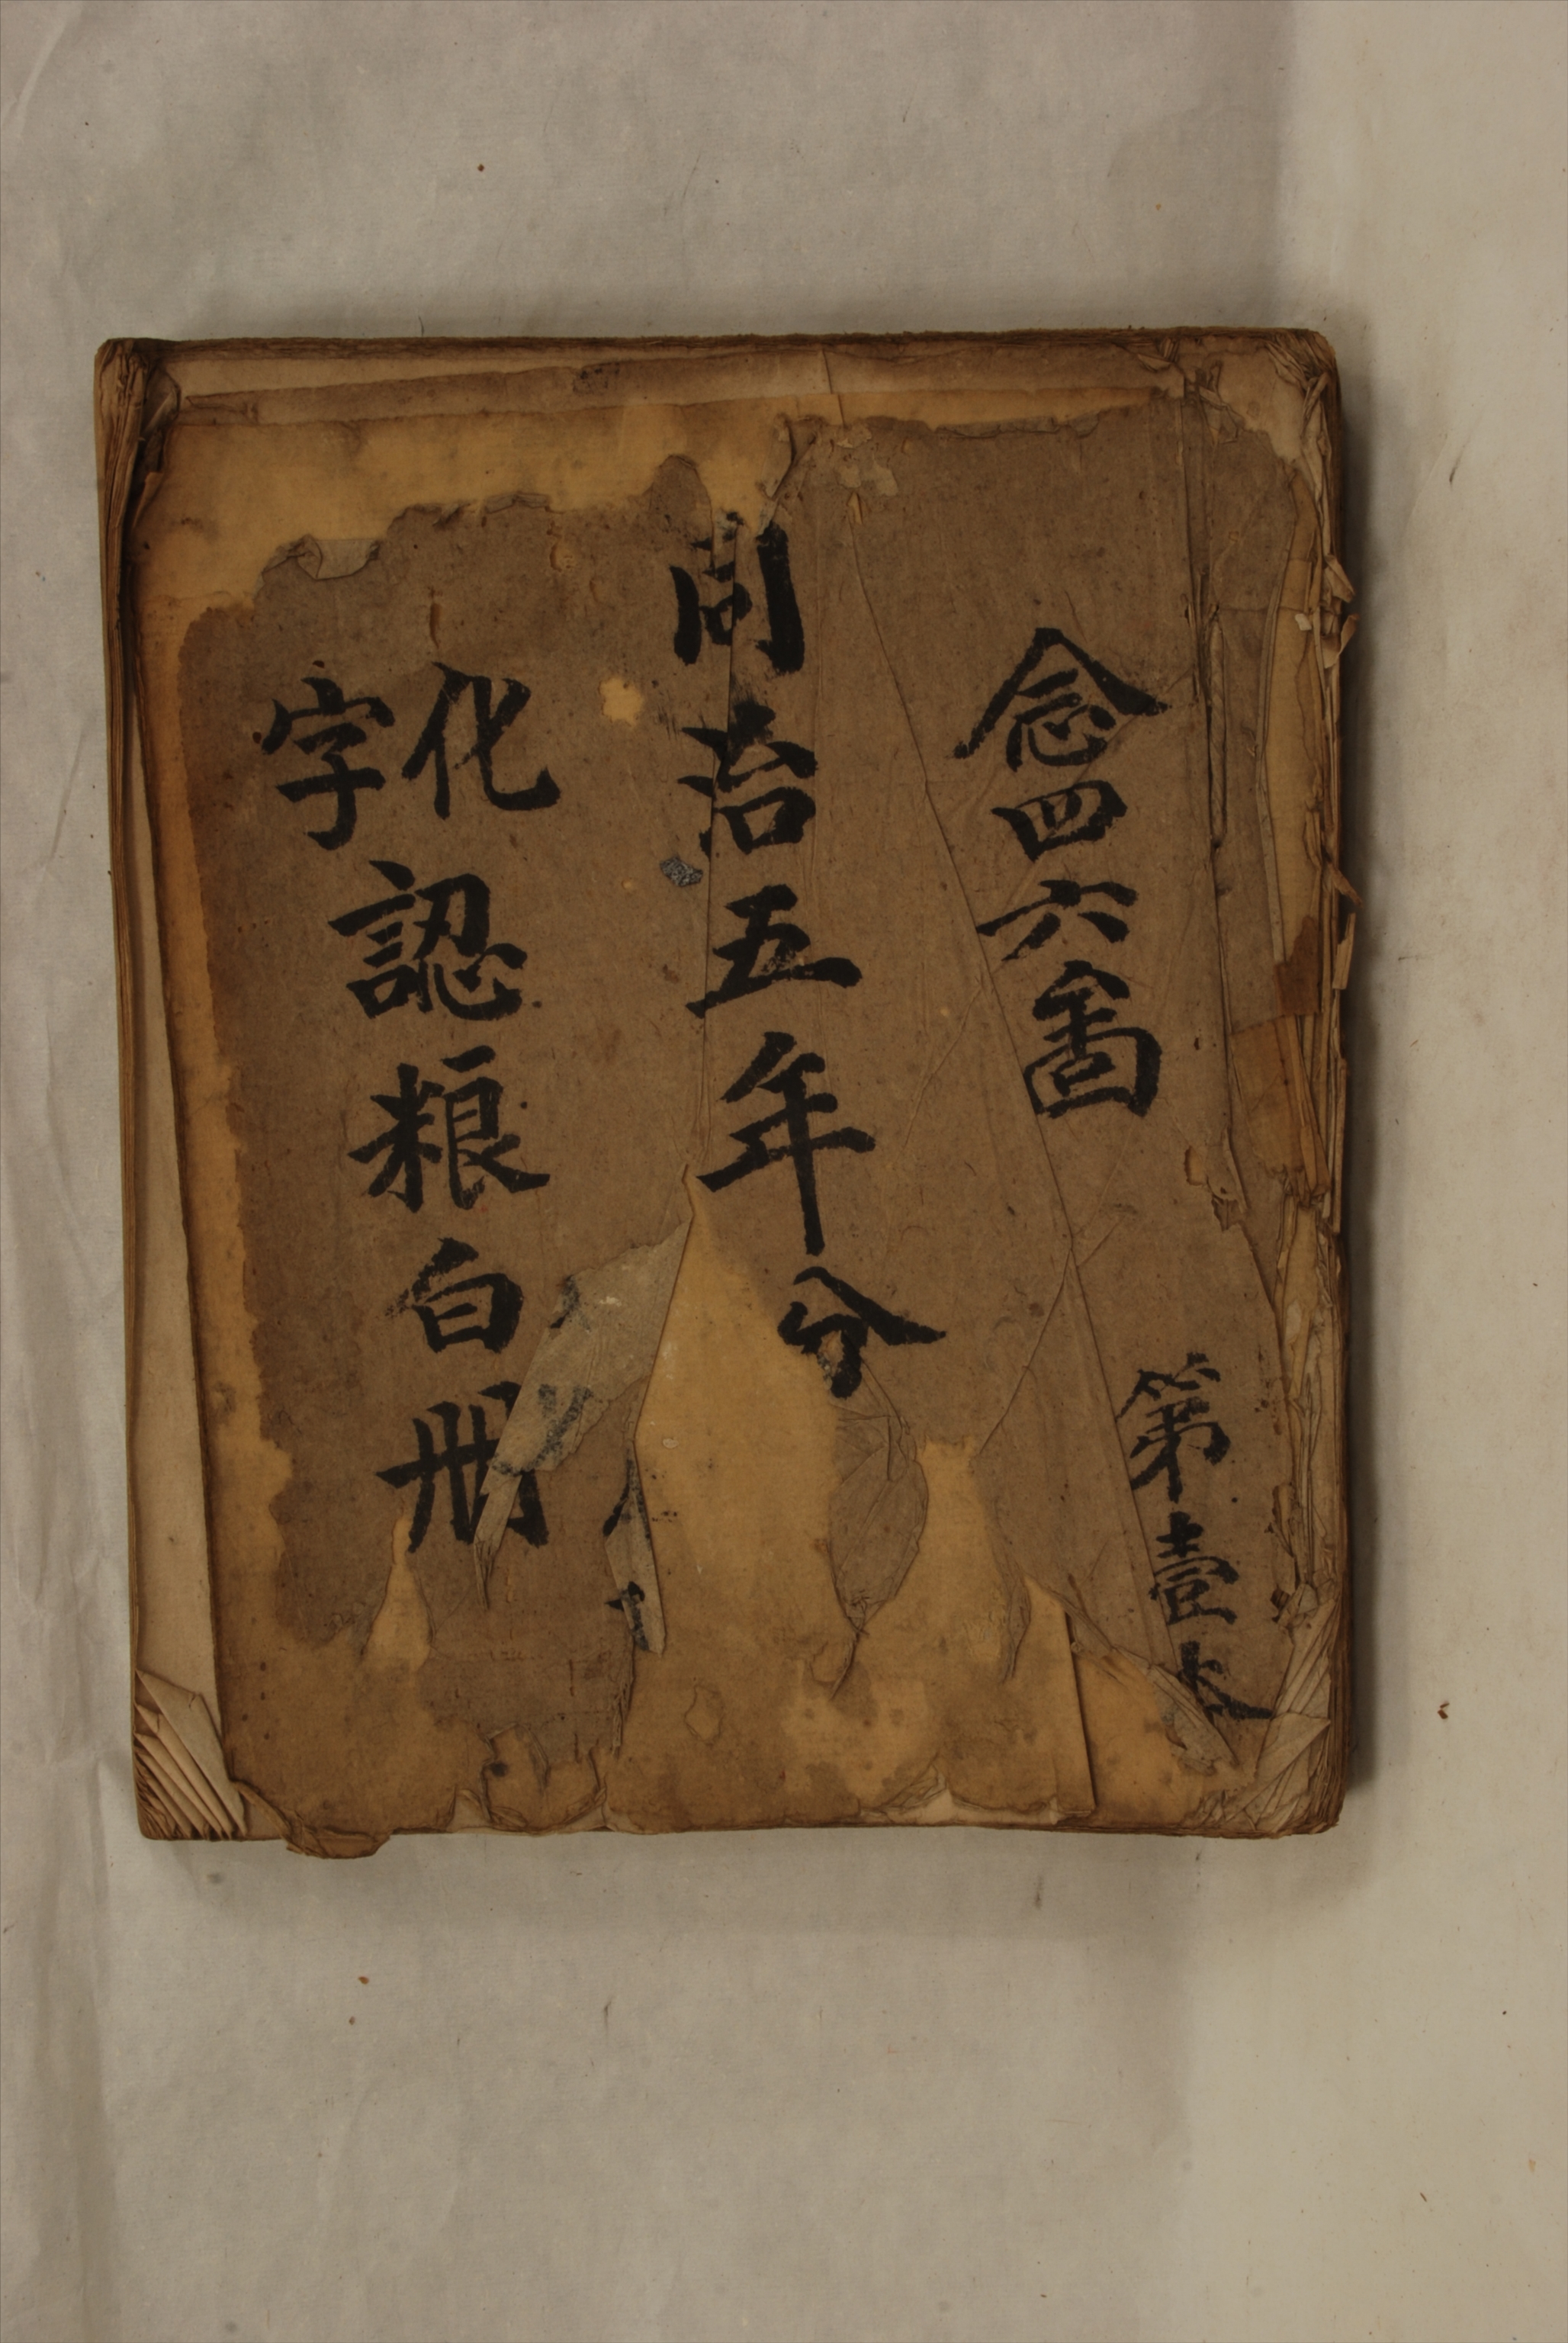 念四六啚
第壹本
同治五年分
化字認粮白册